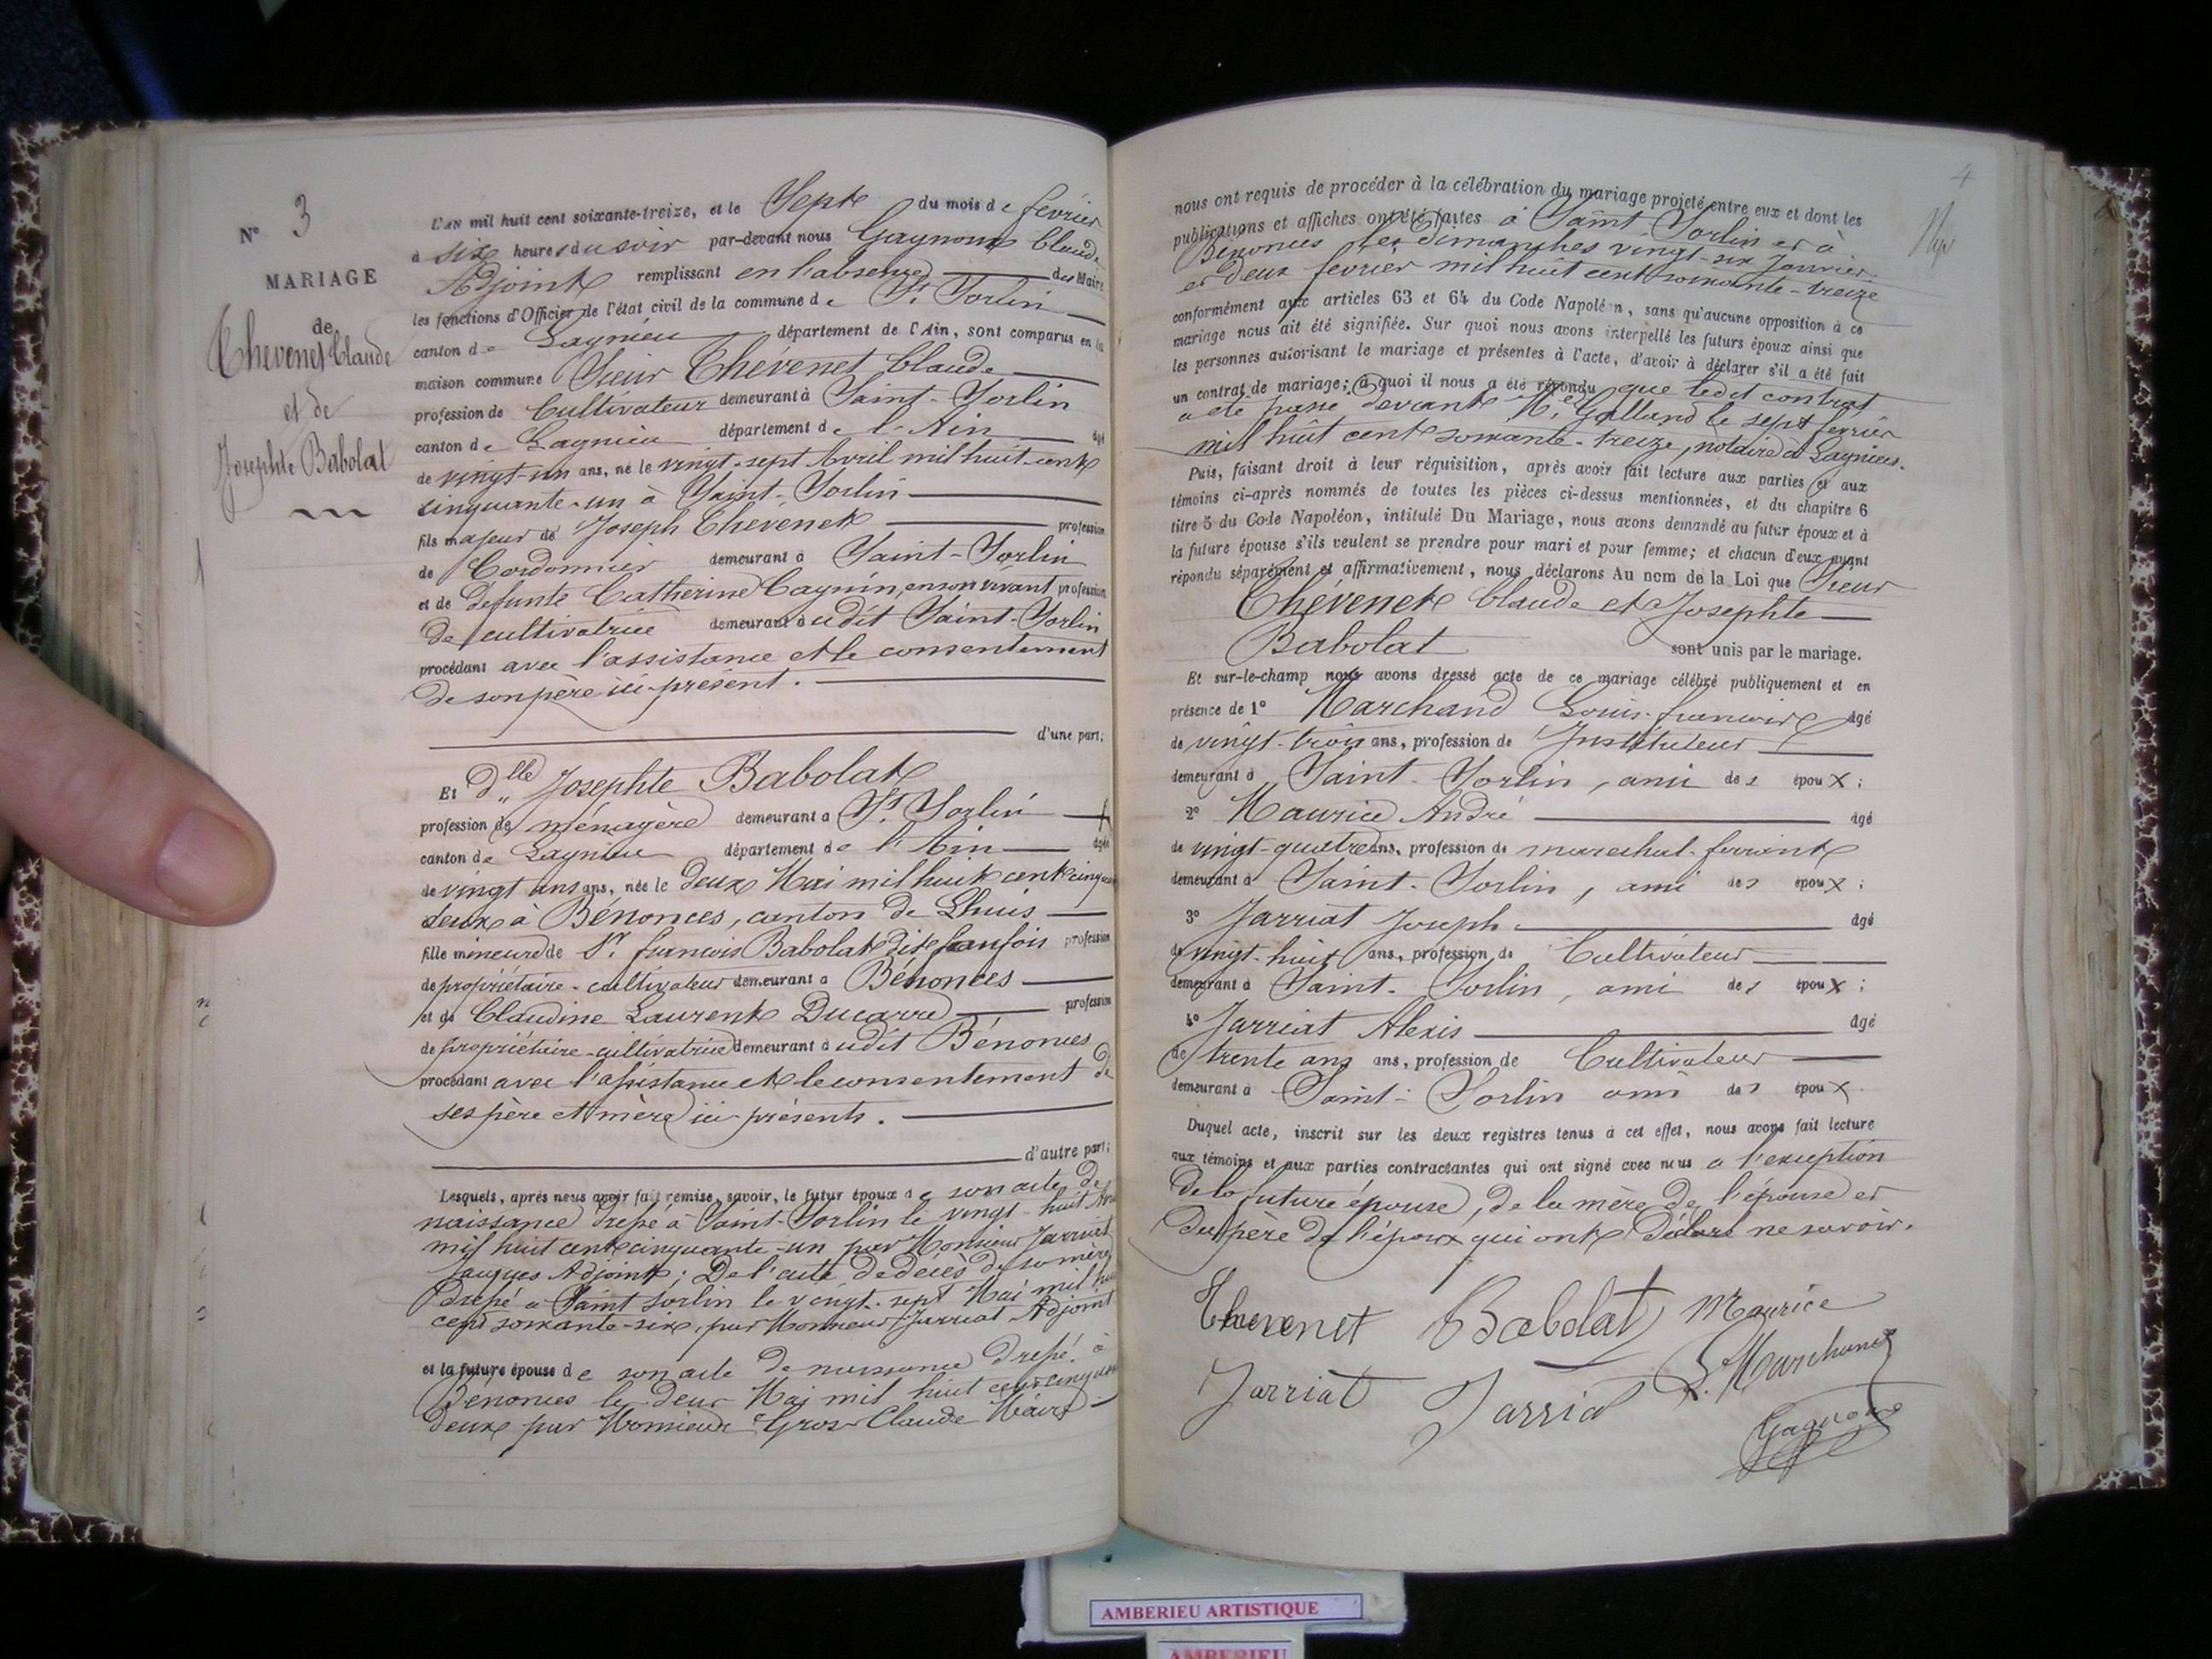 N° 3
MARIAGE
de
Chevenet Claude
et de
Josephte Babolat
L'AN mil huit cent soixante-treize, et le Sept du mois de février
à six heures du soir par-devant nous Gagnoux Claude
Adjoint remplissant en l'absence du Maire
les fonctions d'Officier de l'état civil de la commune de St Sorlin
canton de Lagnieu département de l'Ain, sont comparus en la
maison commune Sieur Chevenet Claude
profession de Cultivateur demeurant à Saint-Sorlin
canton de Lagnieu département de l'Ain âgé
de vingt-un ans, né le vingt-sept Avril mil huit cent
cinquante-un à Saint-Sorlin
fils majeur de Joseph Chevenet profession
de Cordonnier demeurant à Saint-Sorlin
et de défunte Catherine Cagnin, en son vivant profession
de cultivatrice demeurant audit Saint-Sorlin
procédant avec l'assistance et le consentement
de son père ici présent.
d'une part;
Et dlle Josephte Babolat
profession de ménagère demeurant à St Sorlin
canton de Lagnieu département de l'Ain âgée
de vingt ans ans, née le deux Mai mil huit cent cinquante
deux à Bénonces, canton de Lhuis
fille mineure de Sr francois Babolat dit fanfois profession
de propriétaire-cultivateur demeurant à Bénonces
et de Claudine Laurent Ducarre profession
de propriétaire-cultivatrice demeurant audit Bénonces
procédant avec l'assistance et le consentement de
ses père et mère ici présents.
d'autre part;
Lesquels, après nous avoir fait remise, savoir, le futur époux de son acte de
naissance drepé à Saint-Sorlin le vingt-huit Avril
mil huit cent cinquante-un par Monsieur Jarriat
Jacques Adjoint; De l'acte de décès de sa mère
drepé a Saint Sorlin le vingt-sept Mai mil huit
cent soixante-six, par Monsieur Jarriat Adjoint
et la future épouse de son acte de naissance drepé à
Bénonces le deux Mai mil huit cent cinquante
deux par Monsieur Gros Claude Maire
4
nous ont requis de procéder à la célébration du mariage projeté entre eux et dont les
publications et affiches ont été faites à Saint Sorlin et à
Bénonces les dimanches vingt-six janvier
et deux fevrier mil huit cent soixante-treize
conformément aux articles 63 et 64 du Code Napoléon, sans qu'aucune opposition à ce
mariage nous ait été signifiée. Sur quoi nous avons interpellé les futurs époux ainsi que
les personnes autorisant le mariage et présentes à l'acte, d'avoir à déclarer s'il a été fait
un contrat de mariage; à quoi il nous a été répondu que ledit contrat
a été passé devant Me Galland le sept fevrier
mil huit cent soixante-treize, notaire à Lagnieu.
Puis, faisant droit à leur réquisition, après avoir fait lecture aux parties et aux
témoins ci-après nommés de toutes les pièces ci-dessus mentionnées, et du chapitre 6
titre 5 du Code Napoléon, intitulé Du Mariage, nous avons demandé au futur époux et à
la future épouse s'ils veulent se prendre pour mari et pour femme; et chacun d'eux ayant
répondu séparément et affirmativement, nous déclarons Au nom de la Loi que Sieur
Chevenet Claude et Josephte
Babolat sont unis par le mariage.
Et sur-le-champ nous avons dressé acte de ce mariage célébré publiquement et en
présence de 1° Marchand Louis-francois âgé
de vingt-trois ans, profession de Instituteur
demeurant à Saint-Sorlin, ami des époux;
2° Maurice André âgé
de vingt-quatre ans, profession de marechal-ferrant
demeurant à Saint-Sorlin, ami des époux;
3° Jarriat Joseph âgé
de vingt-huit ans, profession de Cultivateur
demeurant à Saint-Sorlin, ami des époux;
4° Jarriat Alexis âgé
de trente ans ans, profession de Cultivateur
demeurant à Saint-Sorlin ami des époux.
Duquel acte, inscrit sur les deux registres tenus à cet effet, nous avons fait lecture
aux témoins et aux parties contractantes qui ont signé avec nous a l'exception
de la future épouse, de la mère de l'épouse et
du père de l'époux qui ont déclaré ne savoir.
Chevenet Babolat Maurice
Jarriat Jarriat L. Marchand
Gagnoux
AMBERIEU ARTISTIQUE
AMBERIEU